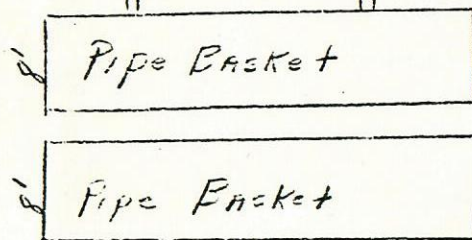 8'
Pipe Basket
8'
Pipe Basket